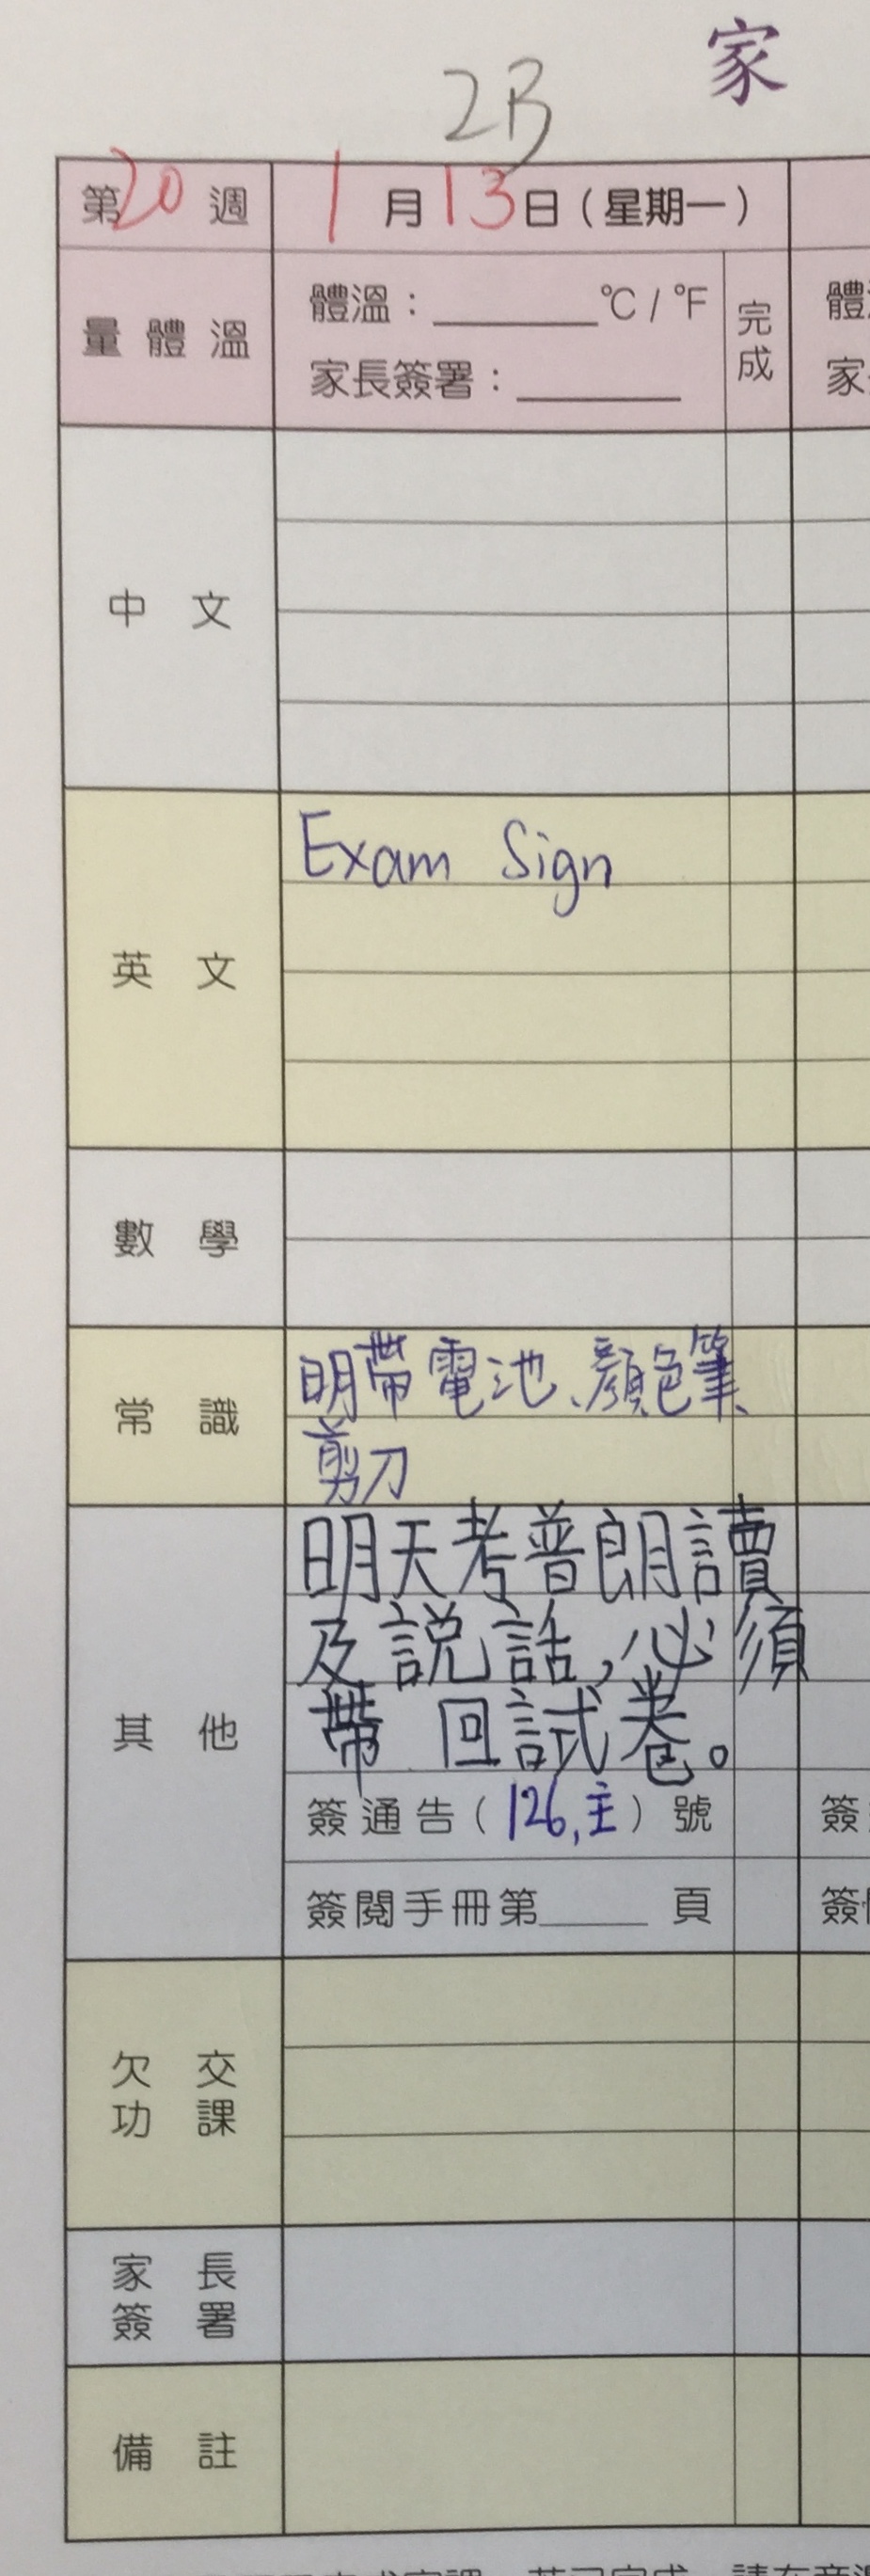 家
2B
第20週 1月13日(星期一)
量體溫 體溫:______°C/°F 完成 體
家長簽署:______ 家
中文
英文 Exam Sign
數學
常識 明帶電池、顏色筆、
剪刀
其他 明天考普朗讀
及説話,必須
帶回試卷。
簽通告(126,主)號 簽
簽閱手冊第____頁 簽
欠交功課
家長簽署
備註